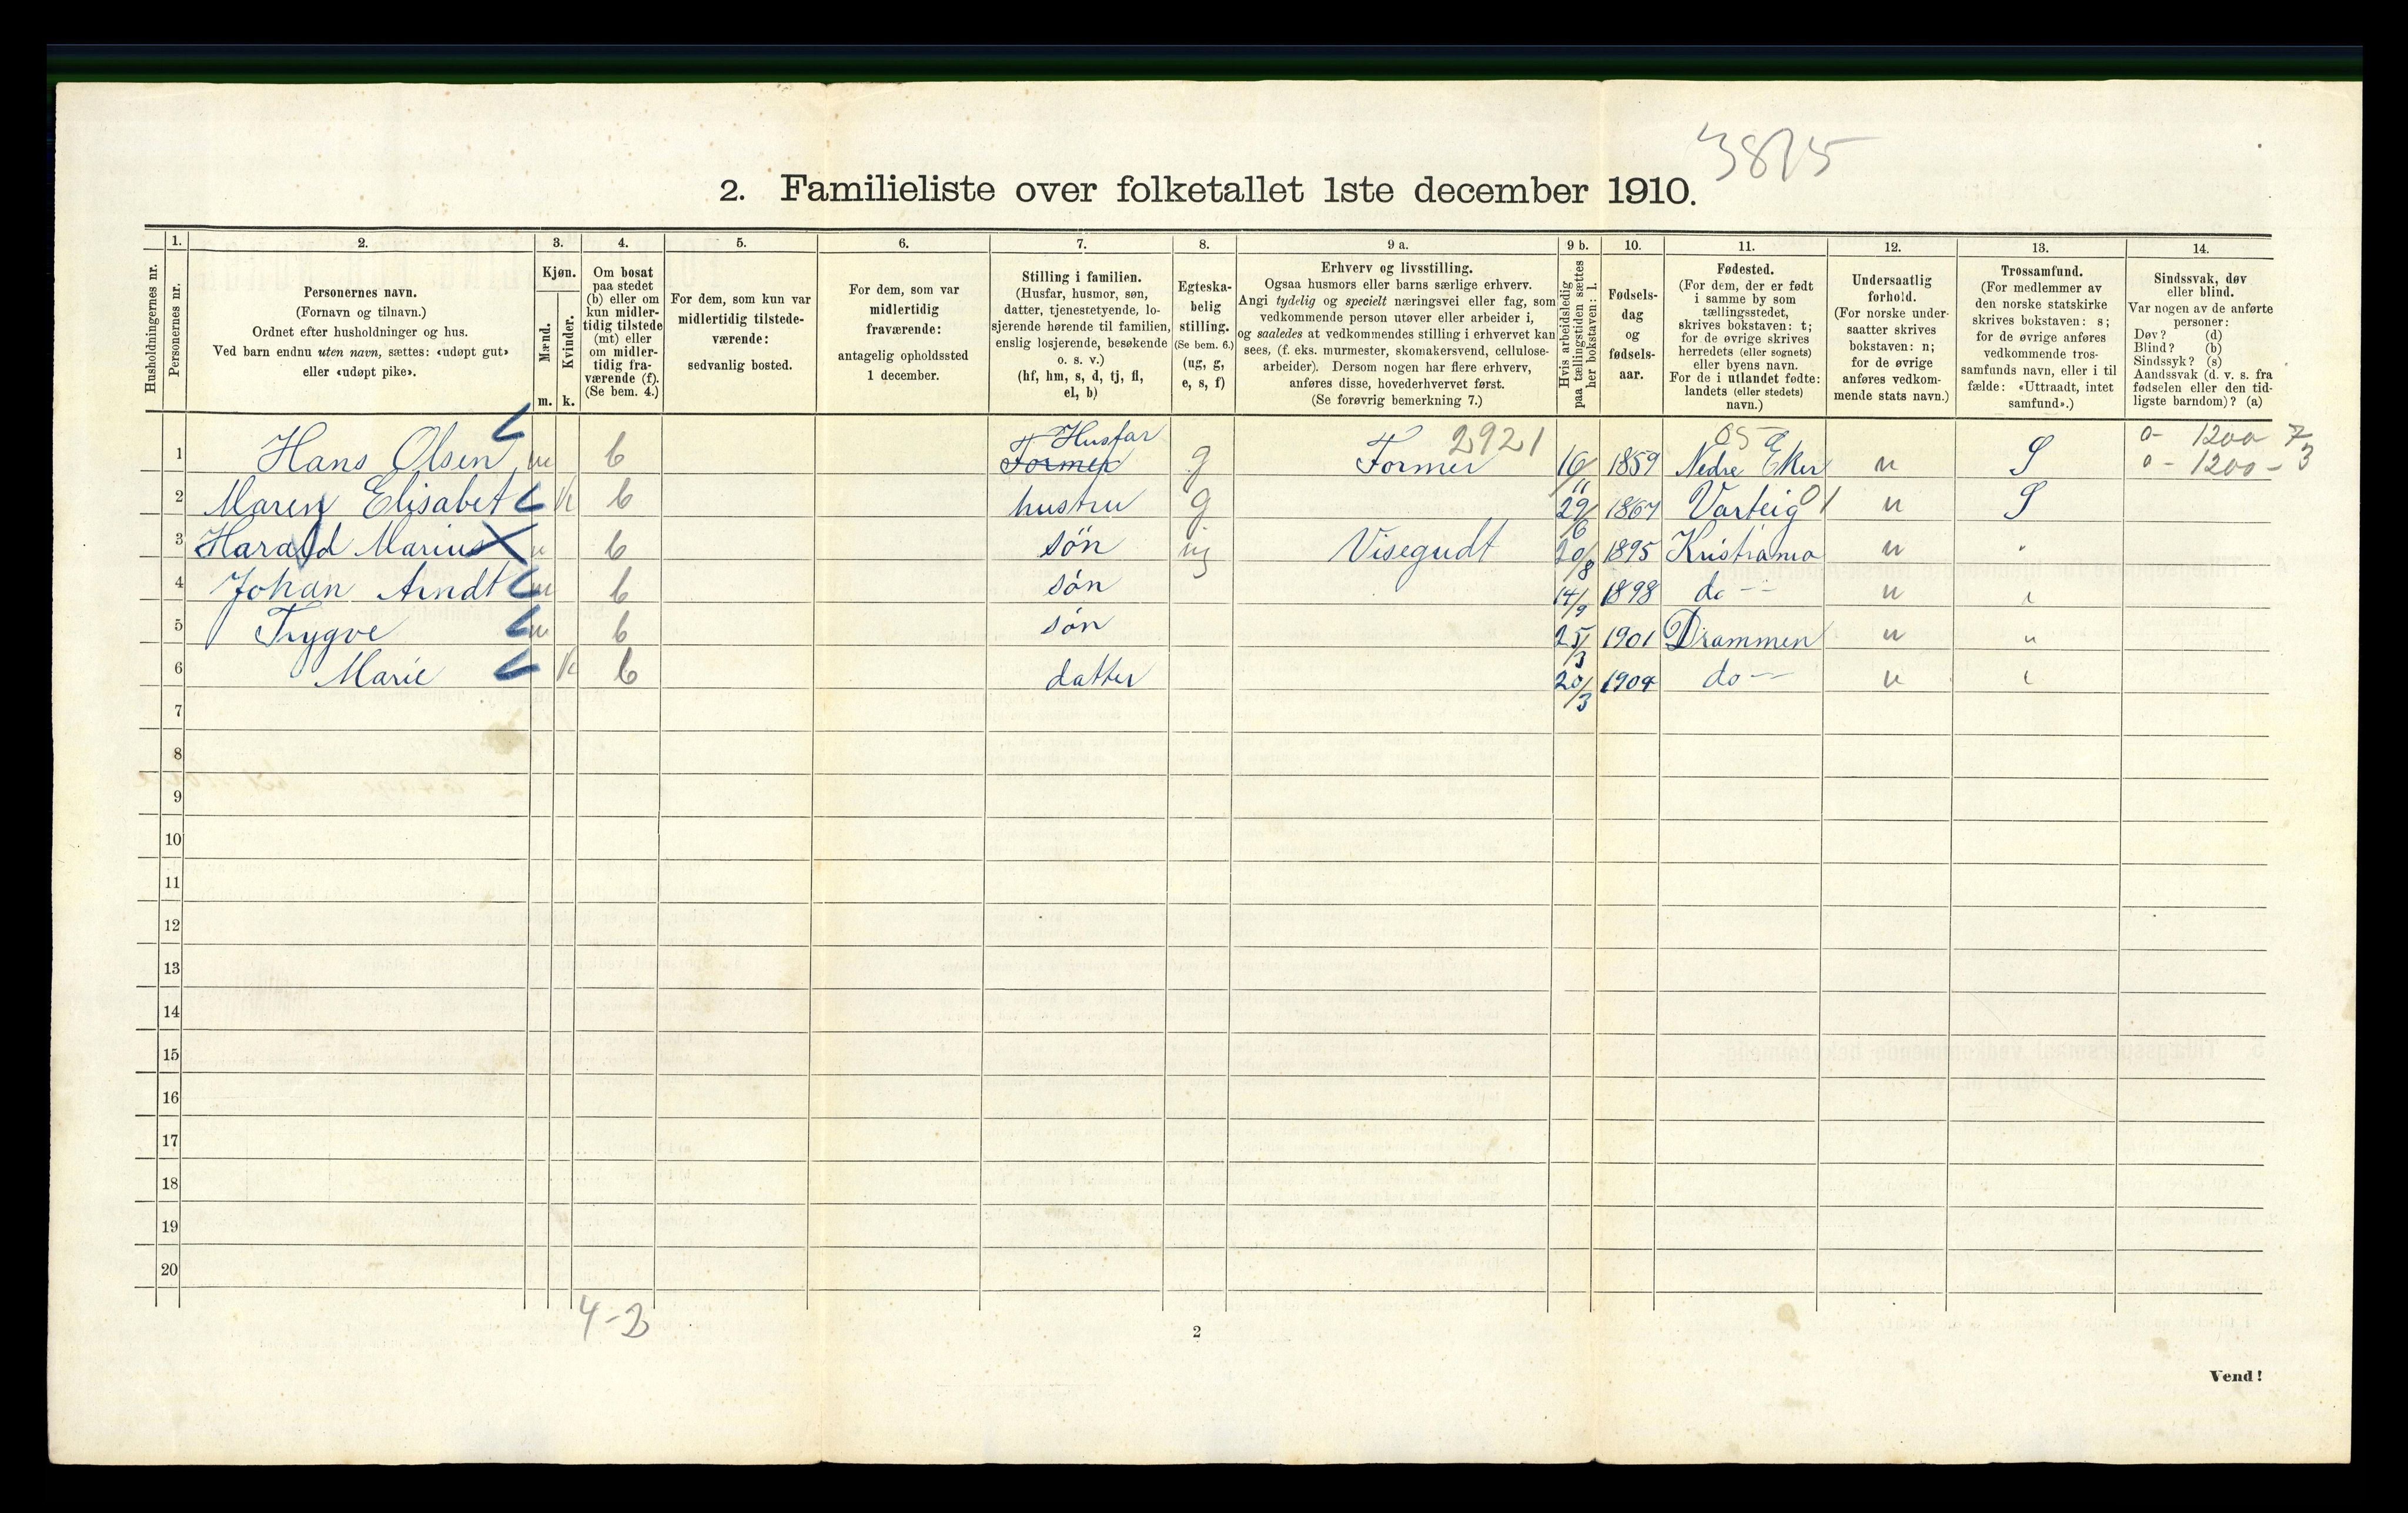 3815
2. Familieliste over folketallet 1ste december 1910.
Husholdningernes nr.
1. Personernes nr.
2. Personernes navn.
(Fornavn og tilnavn.)
Ordnet efter husholdninger og hus.
Ved barn endnu uten navn, sættes: «udøpt gut»
eller «udøpt pike».
3. Kjøn.
Mænd. m.
Kvinder. k.
4. Om bosat
paa stedet
(b) eller om
kun midler-
tidig tilstede
(mt) eller
om midler-
tidig fra-
værende (f).
(Se bem. 4.)
5. For dem, som kun var
midlertidig tilstede-
værende:
sedvanlig bosted.
6. For dem, som var
midlertidig
fraværende:
antagelig opholdssted
1 december.
7. Stilling i familien.
(Husfar, husmor, søn,
datter, tjenestetyende, lo-
sjerende hørende til familien,
enslig losjerende, besøkende
o. s. v.)
(hf, hm, s, d, tj, fl,
el, b)
8. Egteska-
belig
stilling.
(Se bem. 6.)
(ug, g,
e, s, f)
9 a. Erhverv og livsstilling.
Ogsaa husmors eller barns særlige erhverv.
Angi tydelig og specielt næringsvei eller fag, som
vedkommende person utøver eller arbeider i,
og saaledes at vedkommendes stilling i erhvervet kan
sees, (f. eks. murmester, skomakersvend, cellulose-
arbeider). Dersom nogen har flere erhverv,
anføres disse, hovederhvervet først.
(Se forøvrig bemerkning 7.)
9 b. Hvis arbeidsledig
paa tællingstiden sættes
her bokstaven: l.
10. Fødsels-
dag
og
fødsels-
aar.
11. Fødested.
(For dem, der er født
i samme by som
tællingsstedet,
skrives bokstaven: t;
for de øvrige skrives
herredets (eller sognets)
eller byens navn.
For de i utlandet fødte:
landets (eller stedets)
navn.)
12. Undersaatlig
forhold.
(For norske under-
saatter skrives
bokstaven: n;
for de øvrige
anføres vedkom-
mende stats navn.)
13. Trossamfund.
(For medlemmer av
den norske statskirke
skrives bokstaven: s;
for de øvrige anføres
vedkommende tros-
samfunds navn, eller i til-
fælde: «Uttraadt, intet
samfund».)
14. Sindssvak, døv
eller blind.
Var nogen av de anførte
personer:
Døv? (d)
Blind? (b)
Sindssyk? (s)
Aandssvak (d. v. s. fra
fødselen eller den tid-
ligste barndom)? (a)
Husfar 2921 05 0- 1200 7
1 Hans Olsen m b Former g Former 16/11 1859 Nedre Eker n S 0 - 1200 - 3
2 Maren Elisabet k b hustru g 29/6 1867 Varteig 01 n S
3 Harald Marius m b søn ug Visegudt 20/8 1895 Kristiania n "
4 Johan Arndt m b søn 14/9 1898 do n "
5 Trygve m b søn 25/3 1901 Drammen n "
6 Marie k b datter 20/3 1904 do n "
7
8
9
10
11
12
13
14
15
16
17
18
19
20
4-2
2
Vend!